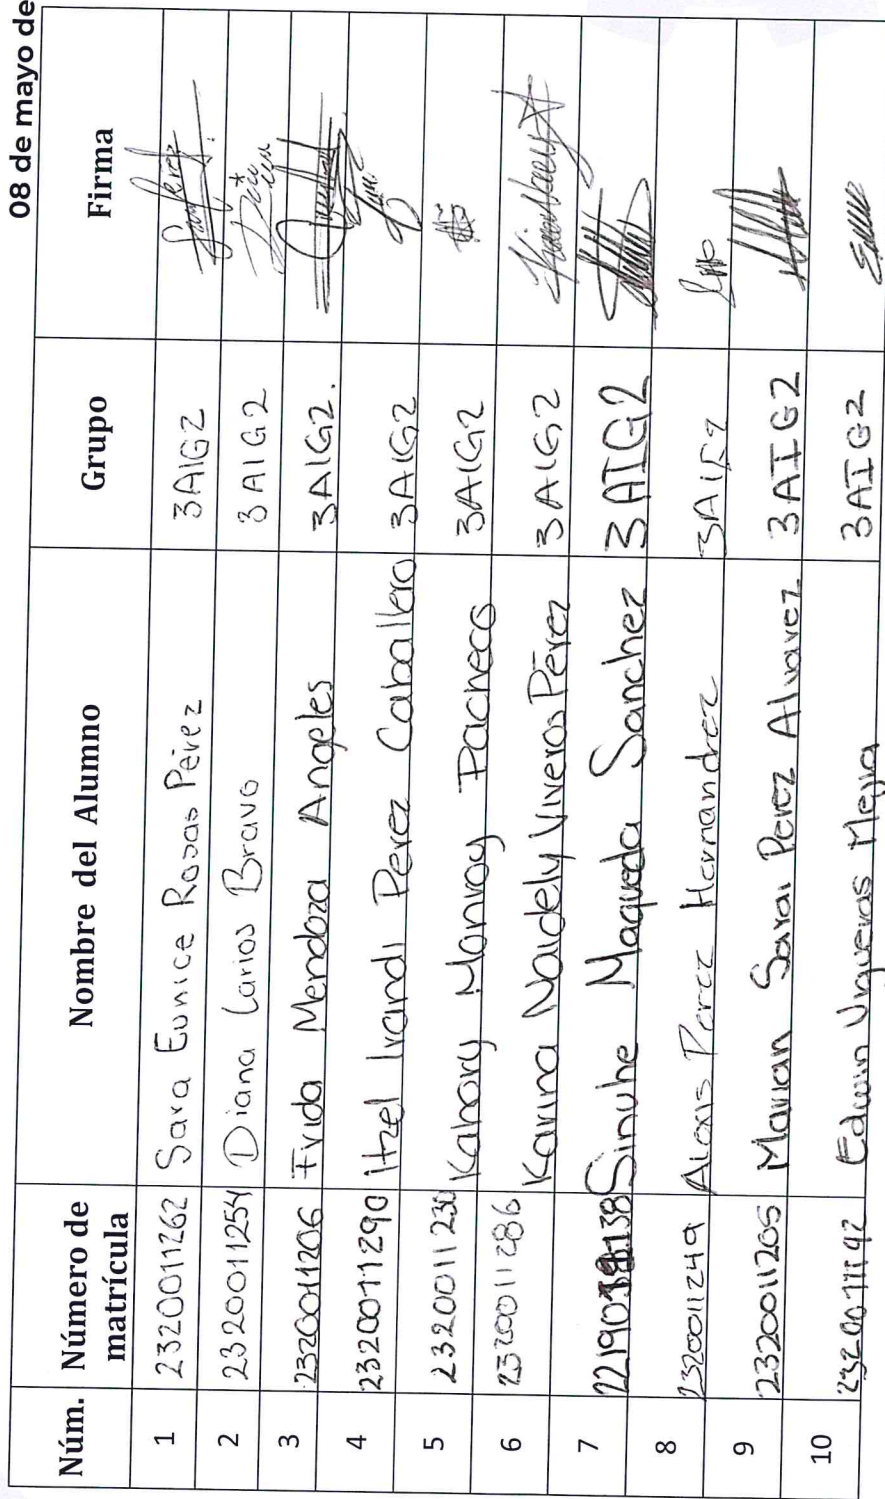 08 de mayo de
Núm. Número de matrícula Nombre del Alumno Grupo Firma
1 2320011262 Sara Eunice Rosas Pérez 3AIG2
2 2320011254 Diana Larios Bravo 3AIG2
3 2320011206 Frida Mendoza Angeles 3AIG2.
4 2320011290 Itzel Ivandi Perez Caballero 3AIG2
5 2320011230 Kahory Monroy Pacheco 3AIG2
6 2320011286 Karina Naidely Viveros Pérez 3AIG2
7 Sinuhe Maqueda Sanchez 3AIG2
8 2320011249 Alexis Perez Hernandez 3AIG2
9 2320011205 Marian Sarai Perez Alvarez 3AIG2
10 2320011192 Edwin Vigueras Mejia 3AIG2